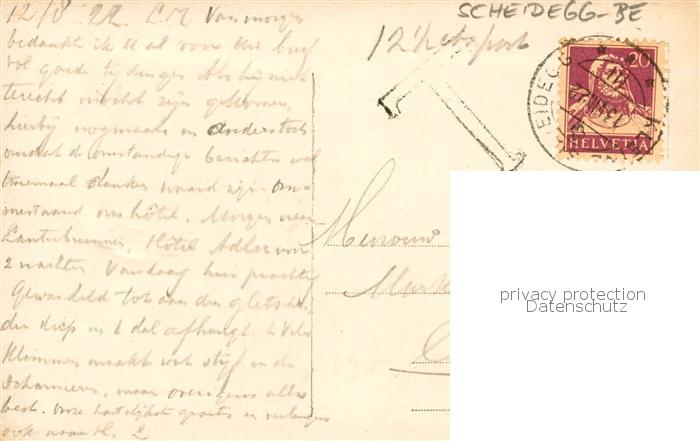 12/8 '22. L.M. Van morgen
bedankt ik U al voor Uw brief
vol goede tijdingen. Als hij niet
terecht mocht zijn gekomen,
hierbij nogmaals en
omdat de omstandige berichten wel
tweemaal danken waard zijn. Om-
mestaand ons hôtel. Morgen naar
Lauterbrunnen, Hôtel Adler voor
2 nachten. Vandaag hier prachtig
Gewandeld tot aan den gletscher,
die diep in 't dal afhangt. 't Vele
Klimmen maakt wat stijf in de
Scharnieren, maar overigens alles
best. Onze hartelijkste groeten en verlangen
ook naar H. L
SCHEIDEGG-BE
12½ ct port
T
EIDEGG
20
HELVETIA
Mevrouw
privacy protection
Datenschutz